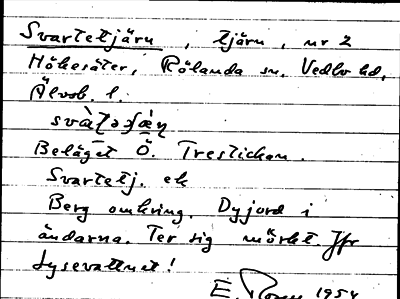 Svartetjärn, tjärn, nr 2
Hökesäter, Rölanda sn. Vedbo hd,
Älvsb. l.
Beläget Ö. Trestickan.
Svartetj. ek
Berg omkring. Dyjord i
ändarna. Ter sig mörkt. Jfr
Lysevattnet!
E. 1954